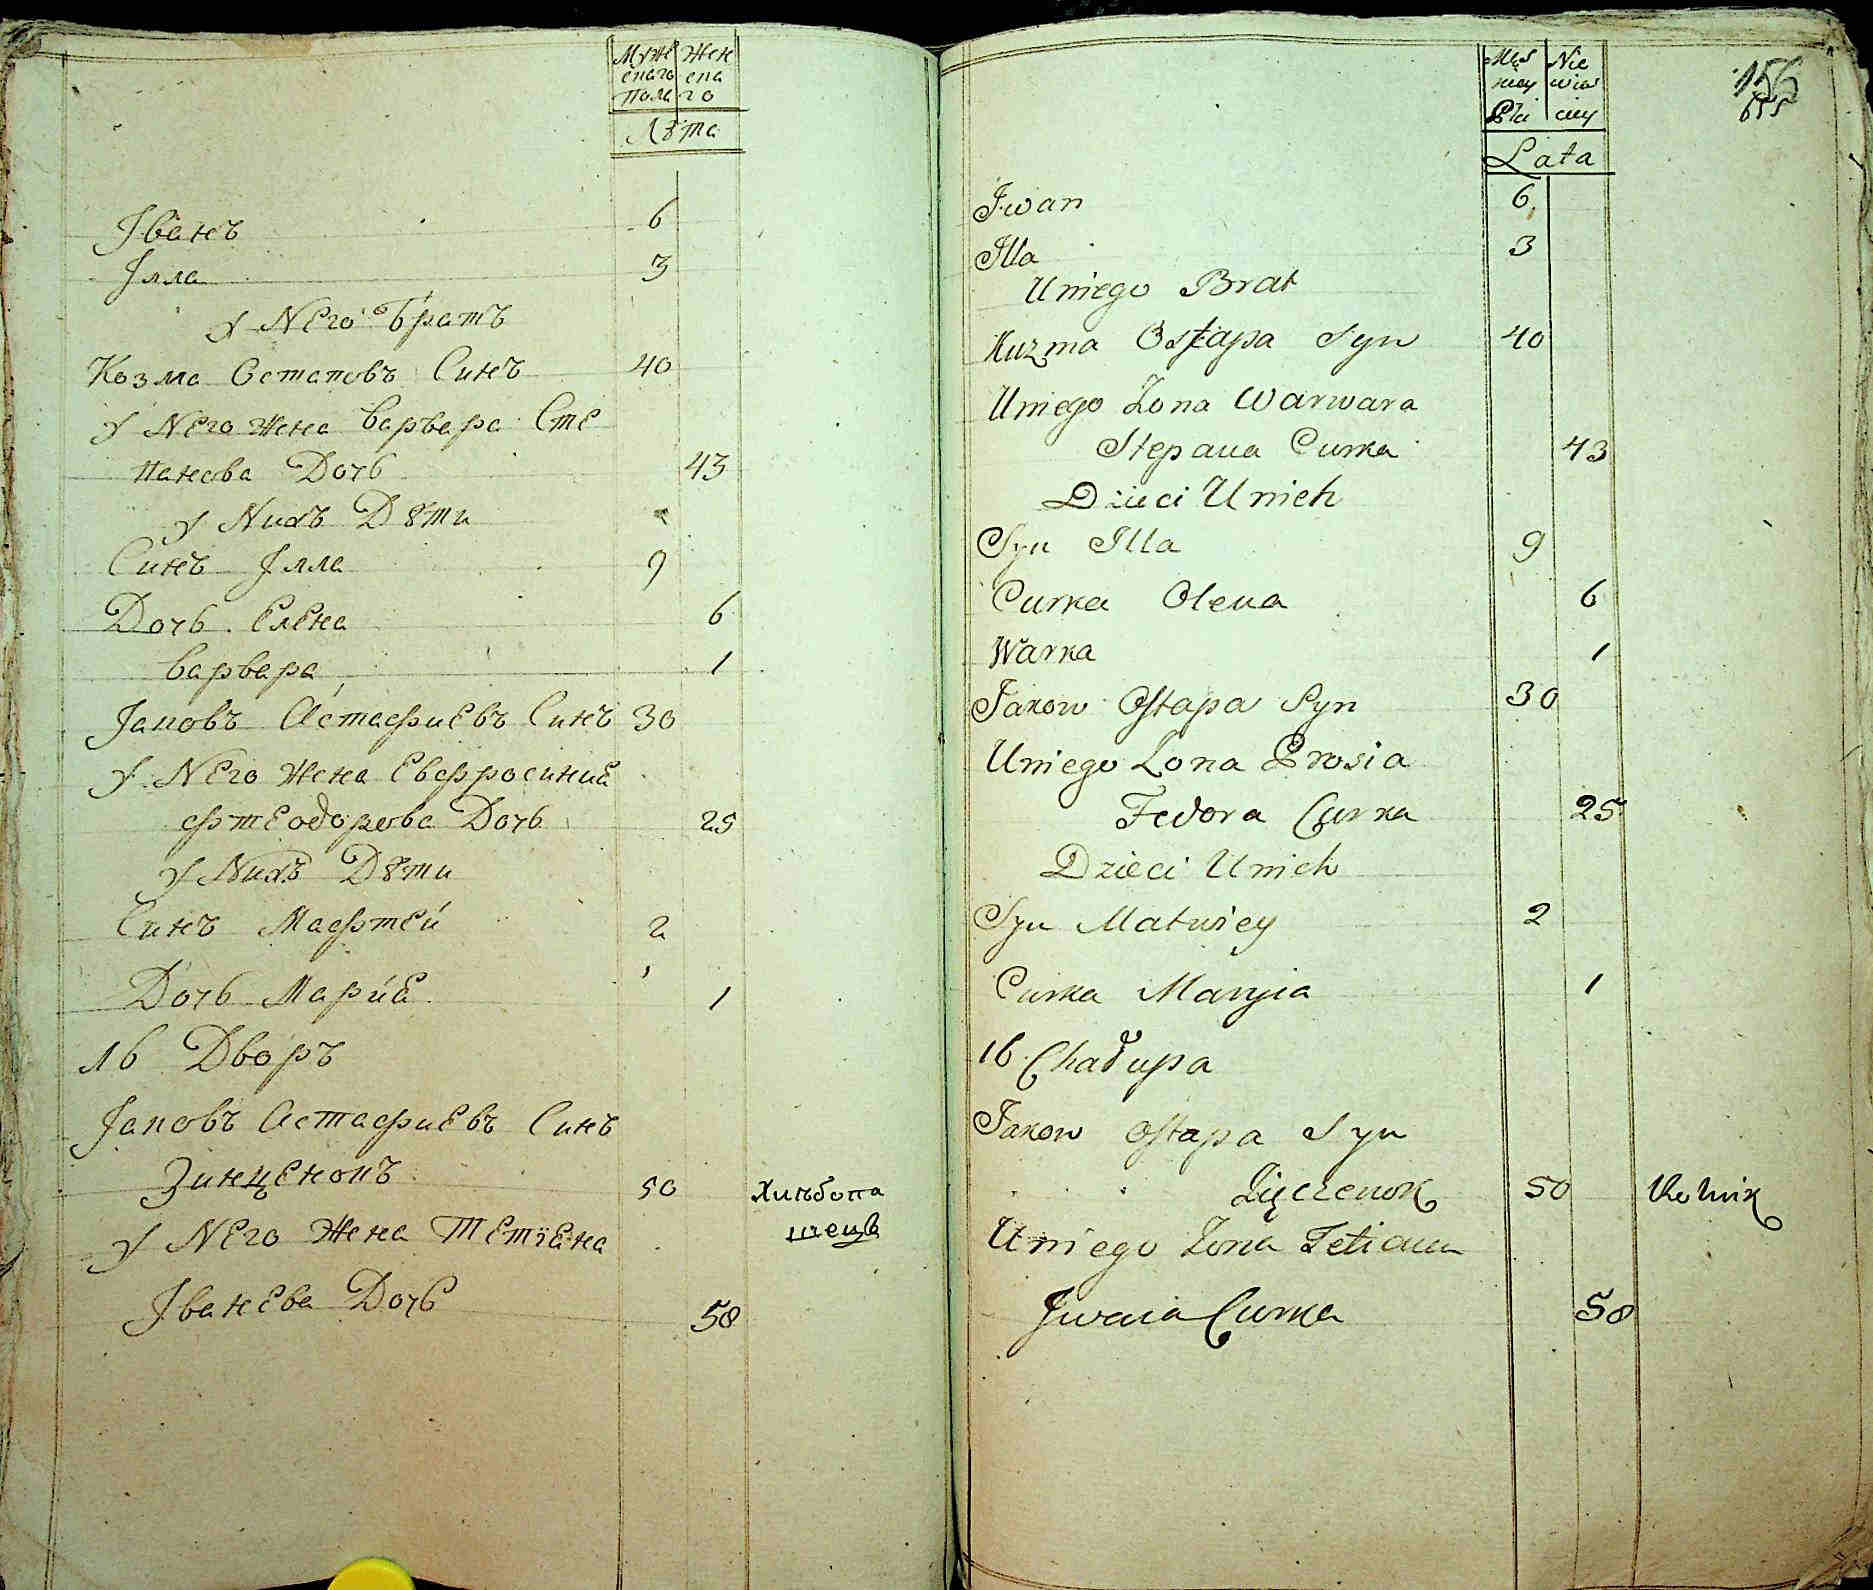 Муже Жен
скаго ска
Пола го
Лѣта
Іванъ 6
Ілла 3
У Него Братъ
Козма Остаповъ Синъ 40
У Него Жена Варвара Сте
панова Дочь 43
У Нихъ Дѣти
Синъ Ілла 9
Дочь Елена 6
Варвара 1
Іаковъ Астафиевъ Синъ 30
У Него Жена Евфросиния
Фтеодорова Дочь 25
У Нихъ Дѣти
Синъ Мафтей 2
Дочь Мария 1
16 Дворъ
Іаковъ Астафиевъ Синъ
Зинценокъ 50 Хлѣбопа
шецъ
У Него Жена Тетіана
Іванева Дочь 58
Męs Nie
kiey wias
Płci ciey
Lata
156
655
Iwan 6
Illa 3
Uniego Brat
Kuzma Ostapa Syn 40
Uniego Zona Warwara
Stepana Curka 43
Dzieci Unich
Syn Illa 9
Curka Olena 6
Warka 1
Jakow Ostapa Syn 30
Uniego Zona Prosia
Fedora Curka 25
Dzieci Unich
Syn Matwiey 2
Curka Maryia 1
16 Chałupa
Jakow Ostapa Syn
Zięczenok 50 Rolnik
Uniego Zona Tetiana
Iwana Curka 58